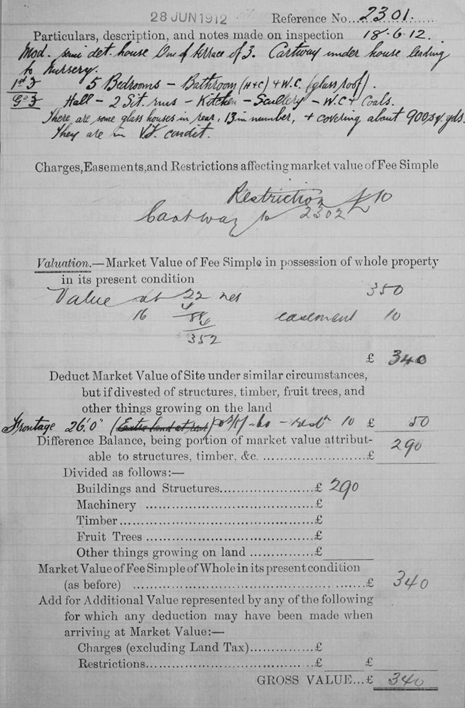 28 JUN 1912 Reference No. 2301.
Particulars, description, and notes made on inspection 18·6·12.
Mod. semi det. house One of terrace of 3. Cartway under house leading
to Nursery.
1st F 5 Bedrooms – Bathroom (H+C) + W.C. (glass roof).
G.F Hall – 2 Sit. rms – Kitchen – Scullery – W.C. + Coals.
There are some glass houses in rear, 13 in number, + covering about 900 sq. yds.
They are in V.F. condit.
Charges, Easements, and Restrictions affecting market value of Fee Simple
Restriction £10
Cartway to 2302
Valuation.—Market Value of Fee Simple in possession of whole property
in its present condition
Value at 22 net 350
16 easement 10
352
£ 340
Deduct Market Value of Site under similar circumstances,
but if divested of structures, timber, fruit trees, and
other things growing on the land
Frontage 26'0" 10 £ 50
Difference Balance, being portion of market value attribut-
able to structures, timber, &c. £ 290
Divided as follows:—
Buildings and Structures £ 290
Machinery £
Timber £
Fruit Trees £
Other things growing on land £
Market Value of Fee Simple of Whole in its present condition
(as before) £ 340
Add for Additional Value represented by any of the following
for which any deduction may have been made when
arriving at Market Value:—
Charges (excluding Land Tax) £
Restrictions £ £
GROSS VALUE...£ 340